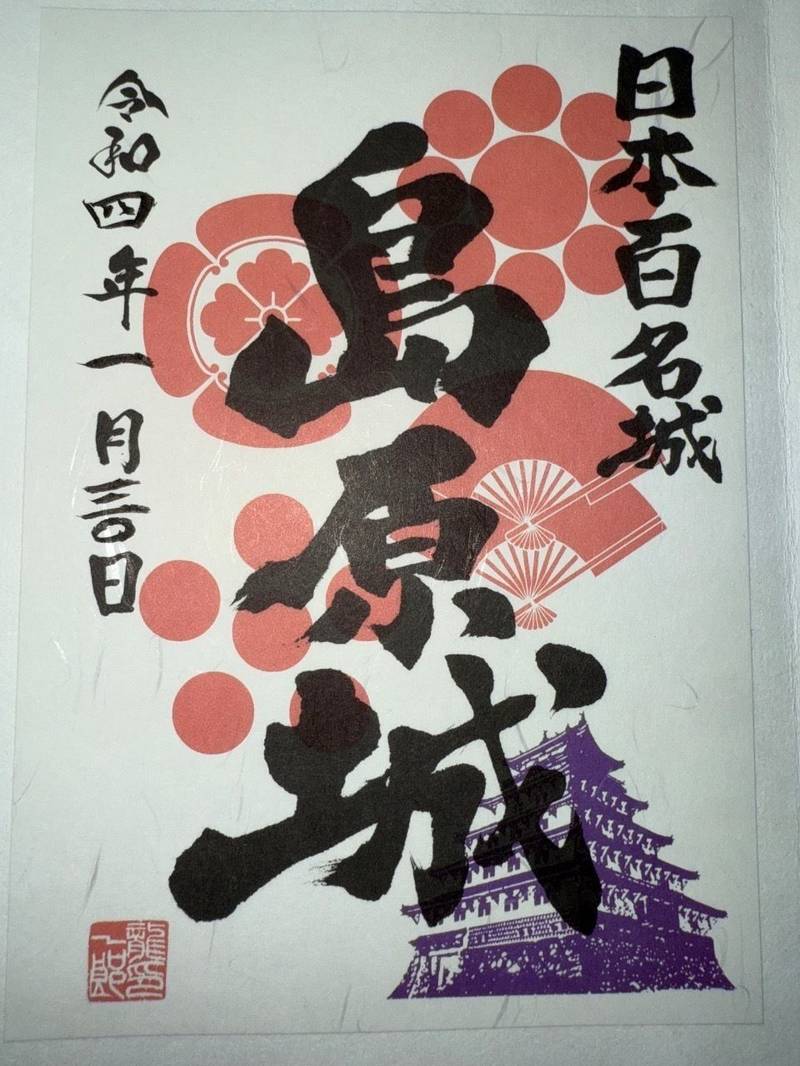 日本百名城
島原城
令和四年一月三〇日